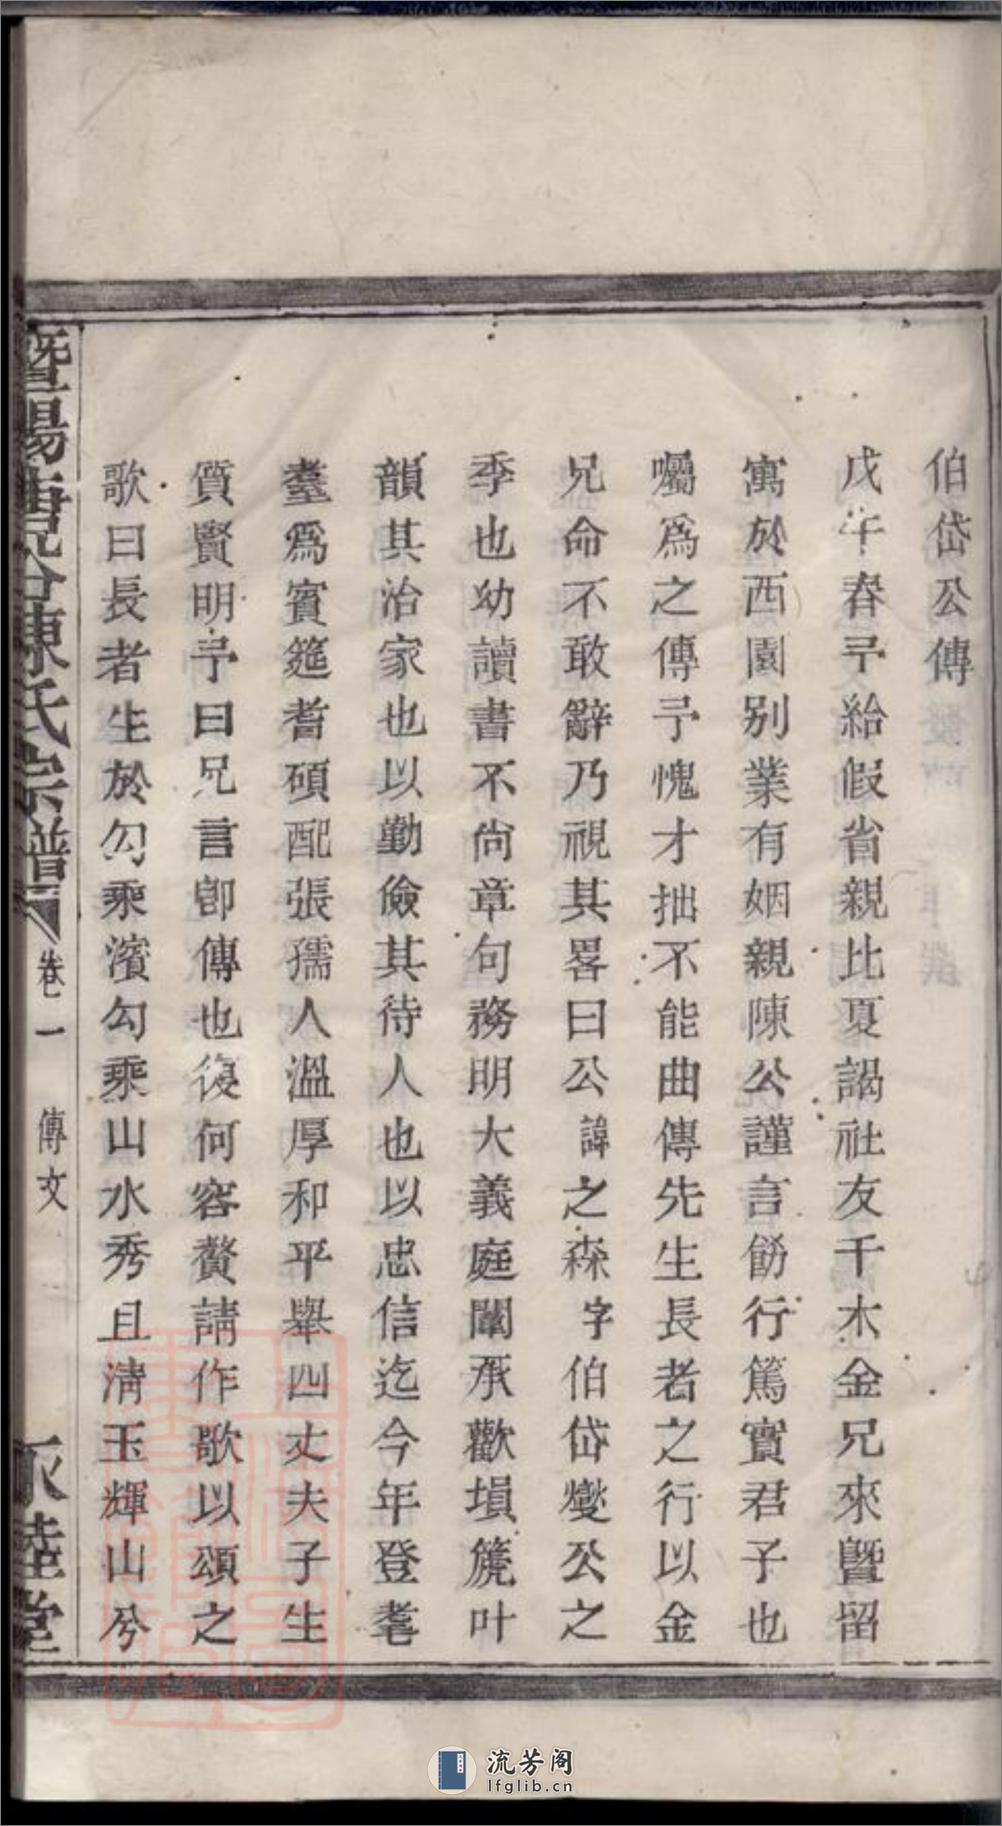 伯岱公傳
戊午春予給假省親比夏謁社友千木金兄來曁留
寓於西園別業有姻親陳公謹言飭行篤實君子也
囑爲之傳予愧才拙不能曲傳先生長者之行以金
兄命不敢辭乃視其畧曰公諱之森字伯岱燮公之
季也幼讀書不尚章句務明大義庭闈承歡塤篪叶
韻其治家也以勤儉其待人也以忠信迄今年登耄
耋爲賓筵耆碩配張孺人溫厚和平舉四丈夫子生
質賢明予曰兄言卽傳也復何容贅請作歌以頌之
歌曰長者生於勾乘濱勾乘山水秀且淸玉輝山兮
暨陽 陳氏宗譜 卷一 傳文 睦堂
流芳阁
lfglib.cn